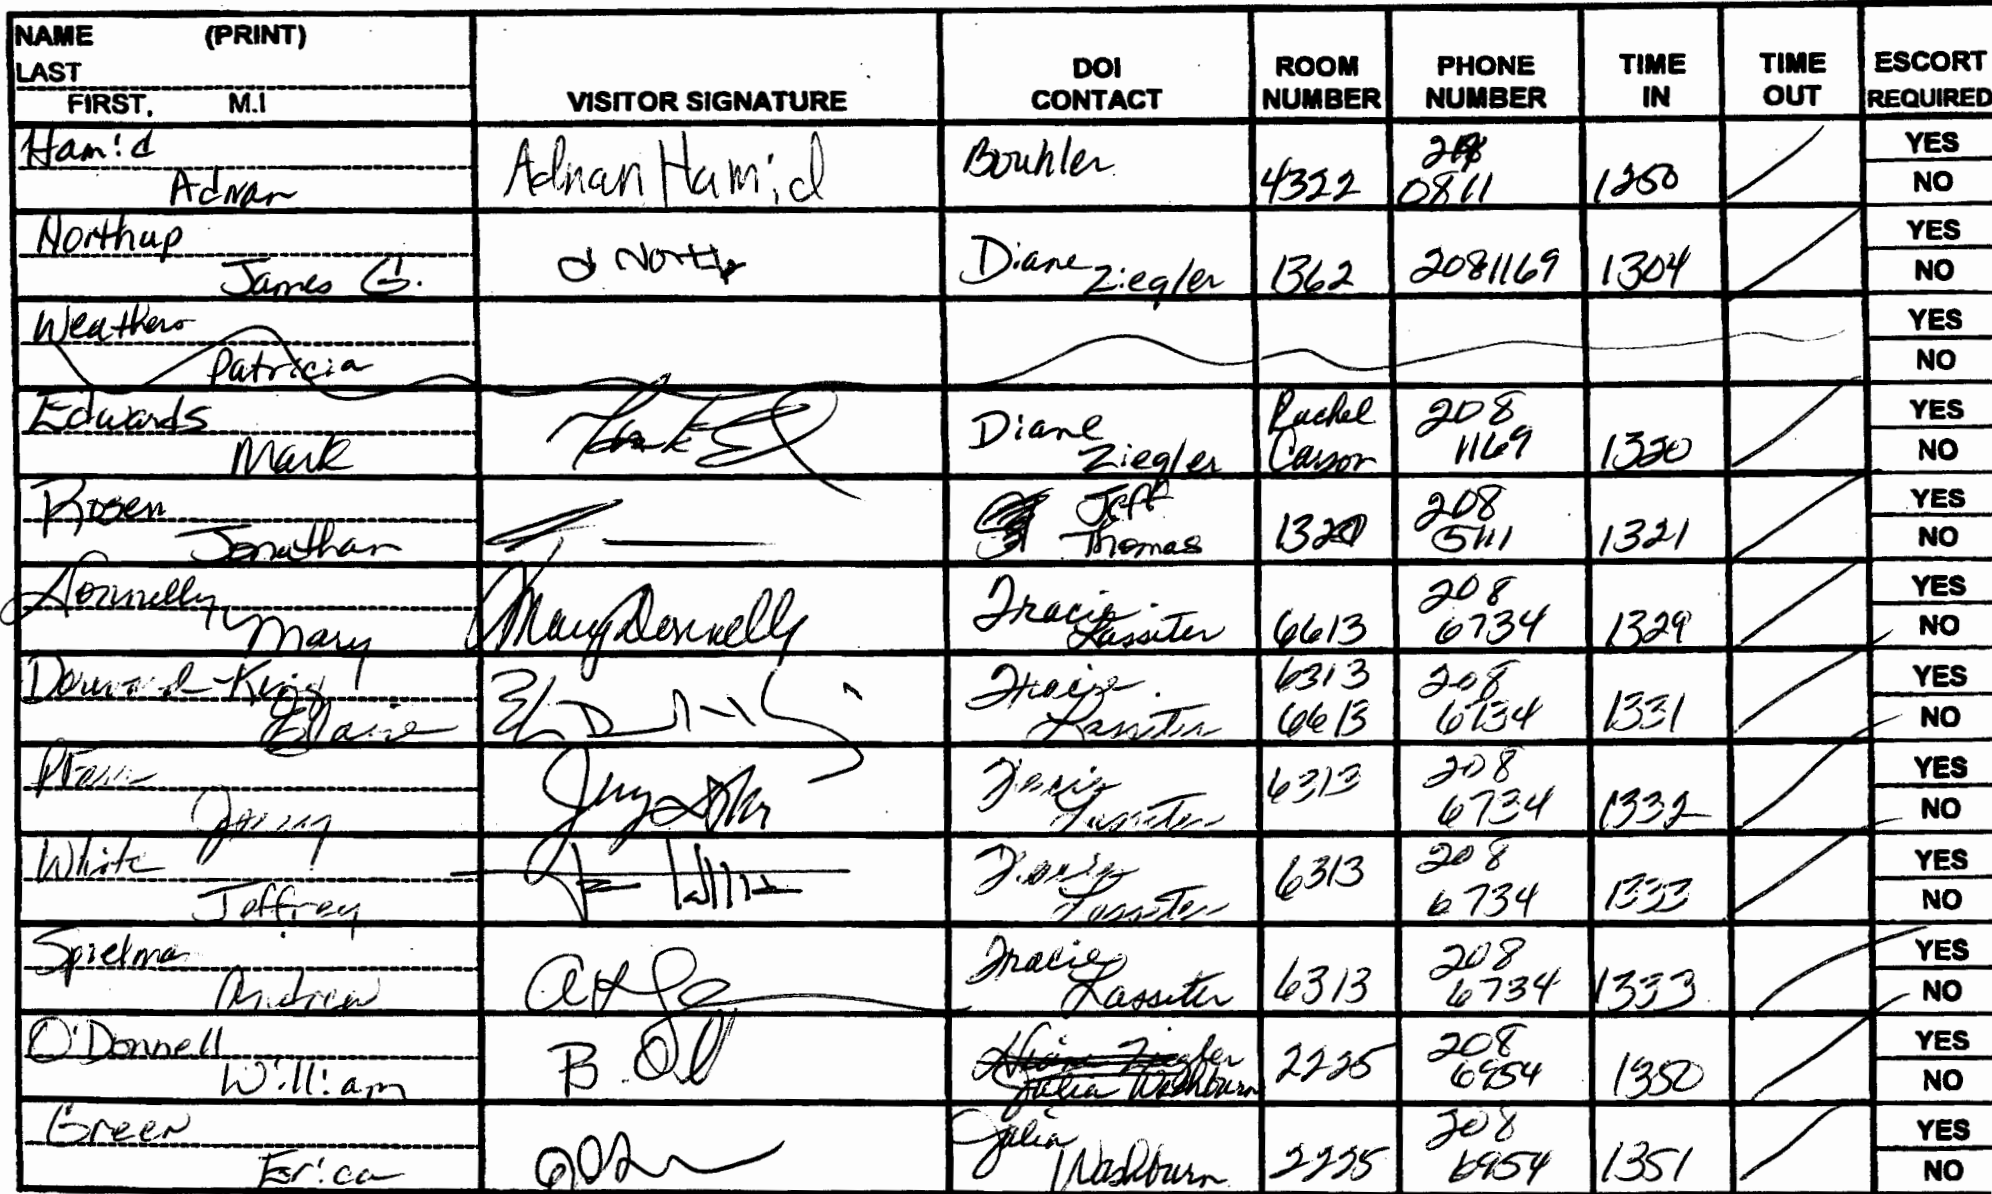 NAME (PRINT)
LAST
FIRST, M.I
VISITOR SIGNATURE
DOI
CONTACT
ROOM
NUMBER
PHONE
NUMBER
TIME
IN
TIME
OUT
ESCORT
REQUIRED
Hamid
Adnan
Adnan Hamid
Bouhler
4322
0811
1250
YES
NO
Northup
James G.
Diane
Ziegler
1362
2081169
1304
YES
NO
Weathers
Patricia
YES
NO
Edwards
Mark
Diane
Ziegler
Rachel
Carson
208
1169
1320
YES
NO
Rosen
Jonathan
Jeff
Thomas
208
5111
1321
YES
NO
Donnelly,
Mary
Mary Donnelly
Tracie
Lassiter
6613
208
6734
1329
YES
NO
Dorward-King
Elaine
Tracie
Lassiter
6313
6613
208
6734
1331
YES
NO
Tracie
Lassiter
6313
208
6734
1332
YES
NO
White
Jeffrey
Tracie
Lassiter
6313
208
6734
1333
YES
NO
Spielma
Andrew
Tracie
Lassiter
6313
208
6734
1333
YES
NO
O'Donnell
William
Diane Ziegler
Julia Washburn
2225
208
6954
1350
YES
NO
Green
Erica
Julia
Washburn
2225
208
6954
1351
YES
NO